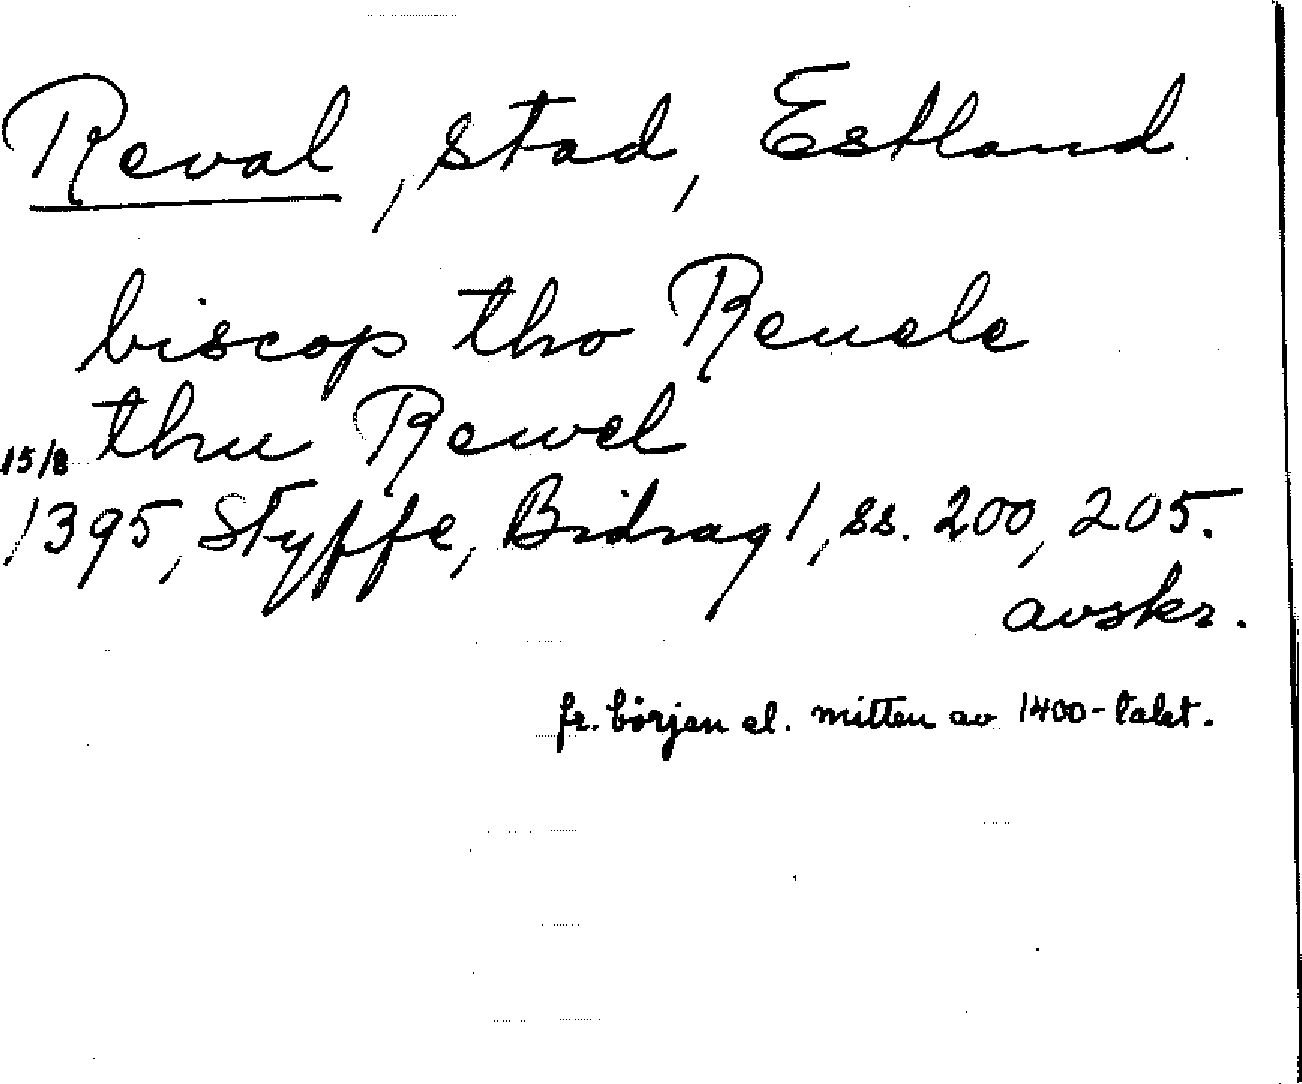 Reval, stad, Estland
biscop tho Reuele
thu Rewel
15/8
1395, Styffe, Bidrag 1, ss. 200, 205.
avskr.
fr. början el. mitten av 1400-talet.